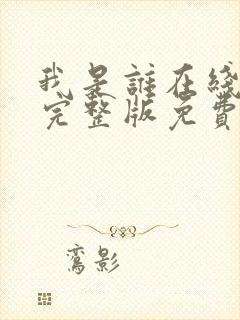 我是誰在綫
完整版免費
鸾影